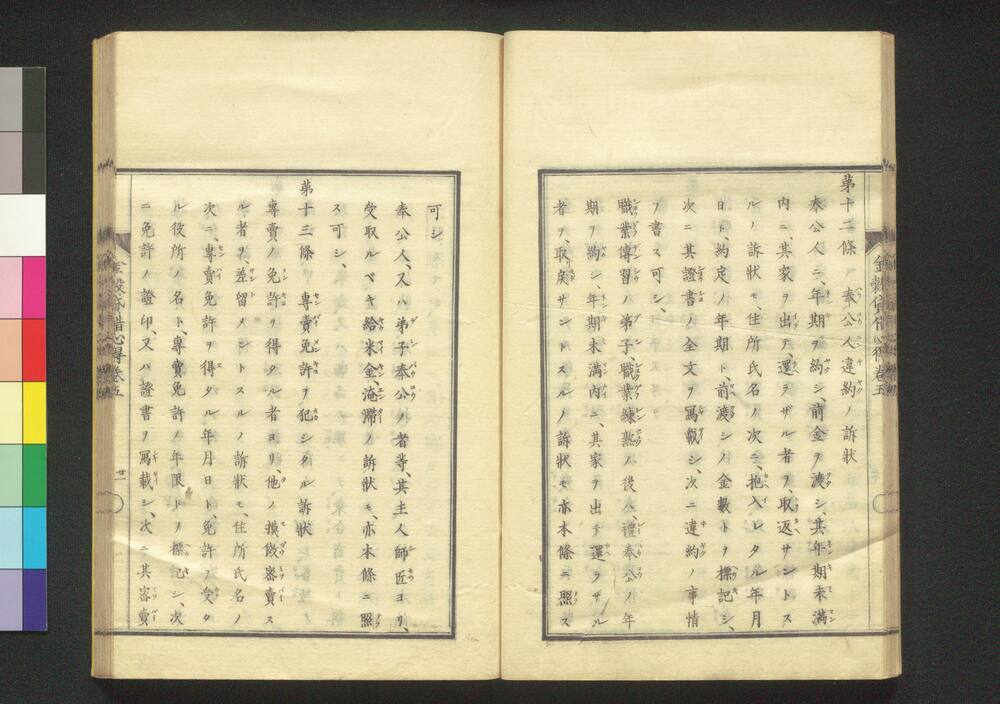 第十二條　奉公人違約ノ訴狀
奉公人ニ、年期ヲ約シ、前金ヲ渡シ、其年期未滿
内ニ、其家ヲ出テ、還ラザル者ヲ、取返サントス
ルノ訴狀モ、住所氏名ノ次ニ、抱入レタル年月
日ト、約定ノ年期ト、前渡シノ金數トヲ標記シ、
次ニ其證書ノ全文ヲ寫載シ、次ニ違約ノ事情
ヲ書ス可シ、
職業傳習ノ弟子、職業練熟ノ後、禮奉公ノ年
期ヲ約シ、年期未滿内ニ、其家ヲ出テ還ラザル
者ヲ、取戻サントスルノ訴狀モ亦本條ニ照ス
金穀貸借心得卷五
可シ
奉公人、又ハ弟子奉公ノ者等、其主人師匠ヨリ、
受取ルベキ給米金、淹滯ノ訴狀モ、亦本條ニ照
ス可シ、
第十三條　專賣免許ヲ犯シタル訴狀
專賣ノ免許ヲ得タル者ヨリ、他ノ摸傚密賣ス
ル者ヲ、差留メントスルノ訴狀モ、住所氏名ノ
次ニ、專賣免許ヲ得タル年月日ト、免許ヲ受タ
ル役所ノ名ト、專賣免許ノ年限トノ標記シ、次
ニ免許ノ證印、又ハ證書ヲ寫載シ、次ニ其密賣
金穀貸借心得卷五　廿一